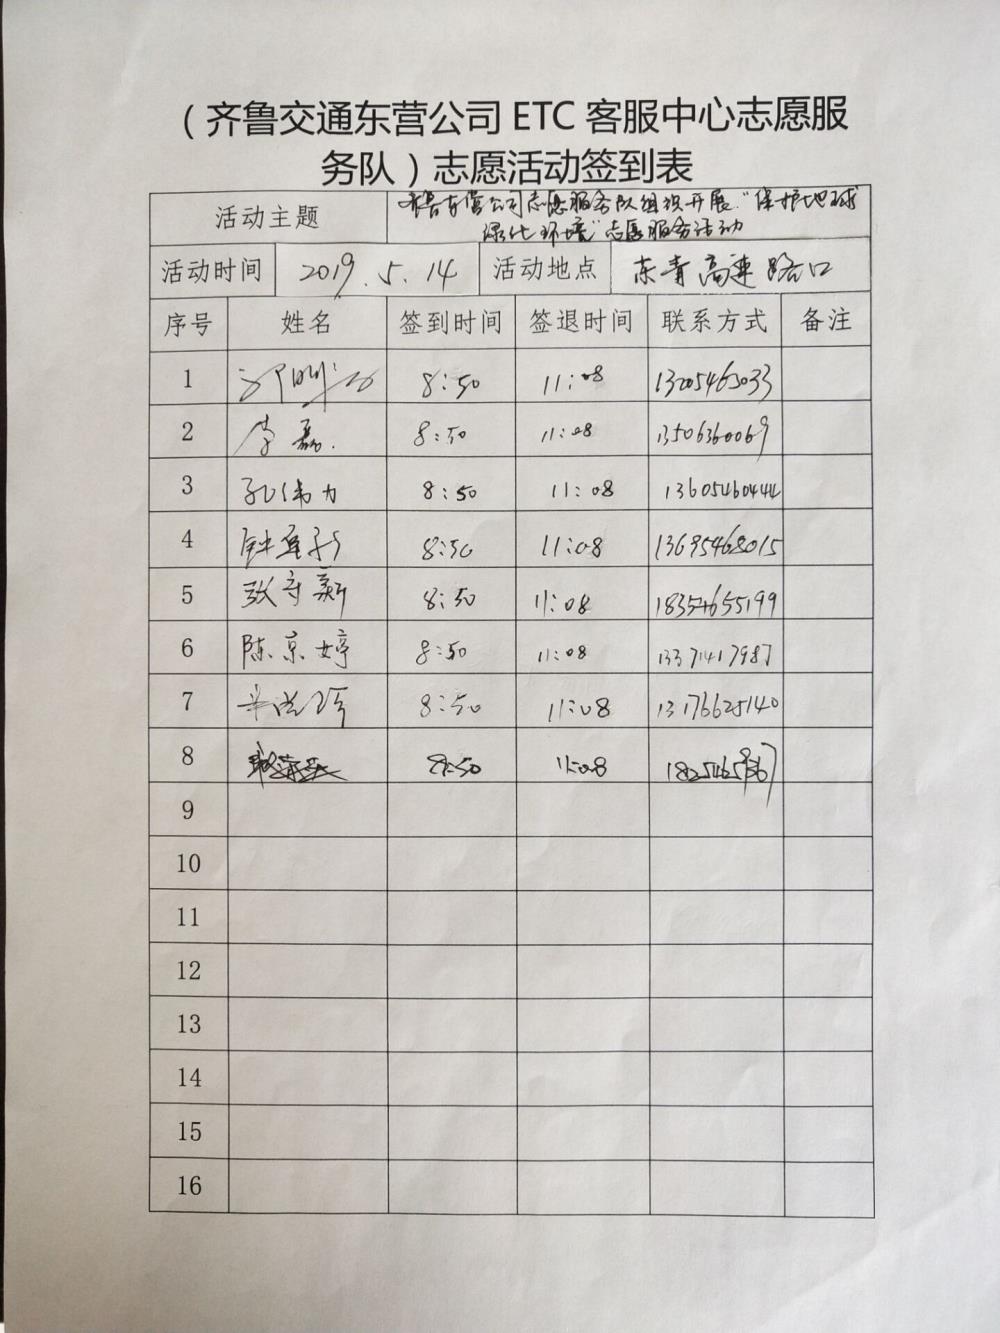 （齐鲁交通东营公司 ETC 客服中心志愿服
务队）志愿活动签到表
活动主题 齐鲁东营公司志愿服务队组织开展“保护地球
绿化环境”志愿服务活动
活动时间 2019.5.14 活动地点 东青高速路口
序号 姓名 签到时间 签退时间 联系方式 备注
1 8:50 11:08 13205465033
2 李磊. 8:50 11:08 13506360069
3 孔伟力 8:50 11:08 13605460444
4 8:50 11:08 13695468015
5 张守新 8:50 11:08 18354655199
6 陈京婷 8:50 11:08 13371417987
7 8:50 11:08 13176625140
8 8:50 11:08
9
10
11
12
13
14
15
16